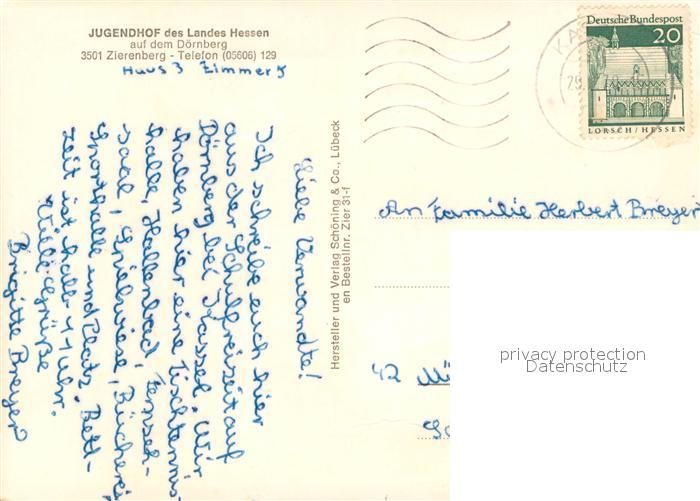 JUGENDHOF des Landes Hessen
auf dem Dörnberg
3501 Zierenberg - Telefon (05606) 129
Haus 3 Zimmer 5
Liebe Verwandte!
Ich schreibe euch hier
aus der Schulfreizeit auf
Dörnberg bei Kassel. Wir
haben hier eine Tischtennis
halle, Hallenbad, Fernseh-
saal, Spielwiese, Bücherei
Sporthalle und Platz. Bett-
zeit ist halb 11 Uhr.
Viele Grüße
Brigitte Breyer
Hersteller und Verlag Schöning & Co., Lübeck
en Bestellnr. Zier 31-f
Deutsche Bundespost
20
LORSCH/HESSEN
An Familie Herbert Breyer
42 Mü
privacy protection
Datenschutz